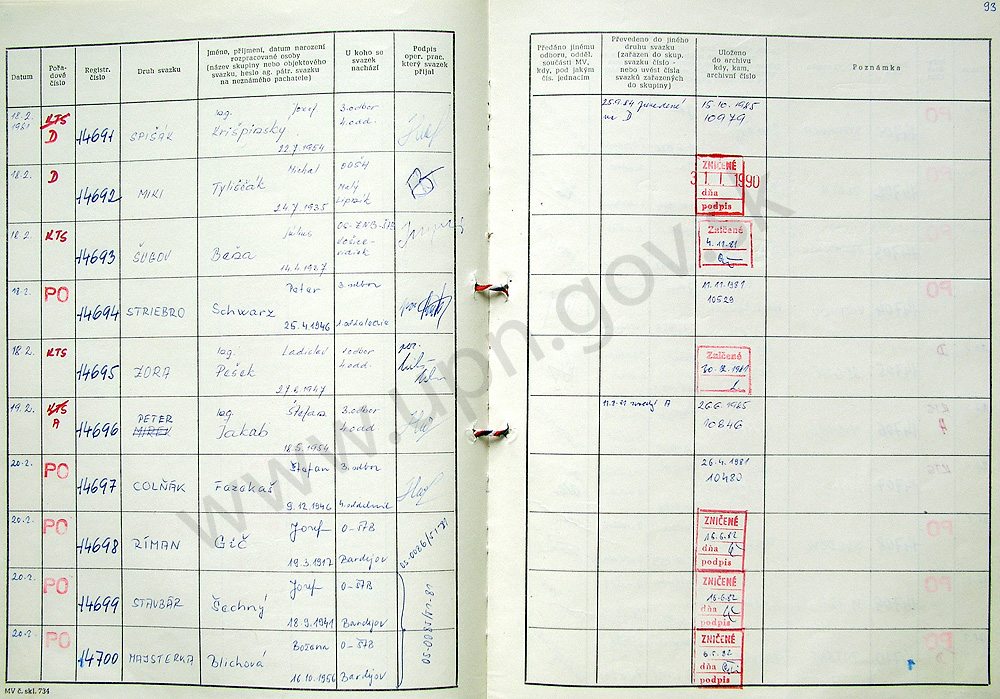 93
Datum
Pořa-
dové
číslo
Registr.
číslo
Druh svazku
Jméno, příjmení, datum narození
rozpracované osoby
(název skupiny nebo objektového
svazku, heslo ag. pátr. svazku
na neznámého pachatele)
U koho se
svazek
nachází
Podpis
oper. prac.
který svazek
přijal
Předáno jinému
odboru, odděl.
součásti MV,
kdy, pod jakým
čís. jednacím
Převedeno do jiného
druhu svazku
(zařazen do skup.
svazku číslo -
nebo uvést čísla
svazků zařazených
do skupiny)
Uloženo
do archivu
kdy, kam,
archivní číslo
Poznámka
18.2.
1981
KTS
D
14691
SPIŠÁK
Ing. Jozef
Krišpinský
22.7.1954
3. odbor
4. odd.
25.9.84
na D
15.10.1985
10979
18.2.
D
14692
MIRI
Michal
Tyliščák
24.7.1935
Malý
Lipník
ZNIČENÉ
31. 1. 1990
dňa
podpis
18.2.
KTS
14693
ŠUGOV
Július
Beša
14.4.1927
Zničené
4.11.81
18.2.
PO
14694
STRIEBRO
Peter
Schwarz
25.4.1946
3. odbor
11.11.1981
10529
18.2.
KTS
14695
ZORA
Ing. Ladislav
Pešek
27.6.1947
1. odbor
4. odd.
por.
Zničené
19.2.
KTS
A
14696
PETER
MIREK
Ing. Štefan
Jakab
18.5.1954
3. odbor
4. odd
A
26.6.1985
10846
20.2.
PO
14697
COLŇÁK
Štefan
Fazekaš
9.12.1946
3. odbor
4. oddelenie
26.4.1981
10480
20.2.
PO
14698
RÍMAN
Jozef
Gič
19.3.1917
O-ŠTB
Bardejov
ZNIČENÉ
15.6.82
dňa
podpis
20.2.
PO
14699
STAVBÁR
Jozef
Šechný
18.9.1941
O-ŠTB
Bardejov
ZNIČENÉ
15.6.82
dňa
podpis
20.2.
PO
14700
MAJSTERKA
Božena
Blichová
16.10.1956
O-ŠTB
Bardejov
ZNIČENÉ
dňa
podpis
1
MV č. skl. 734
www.upn.gov.sk